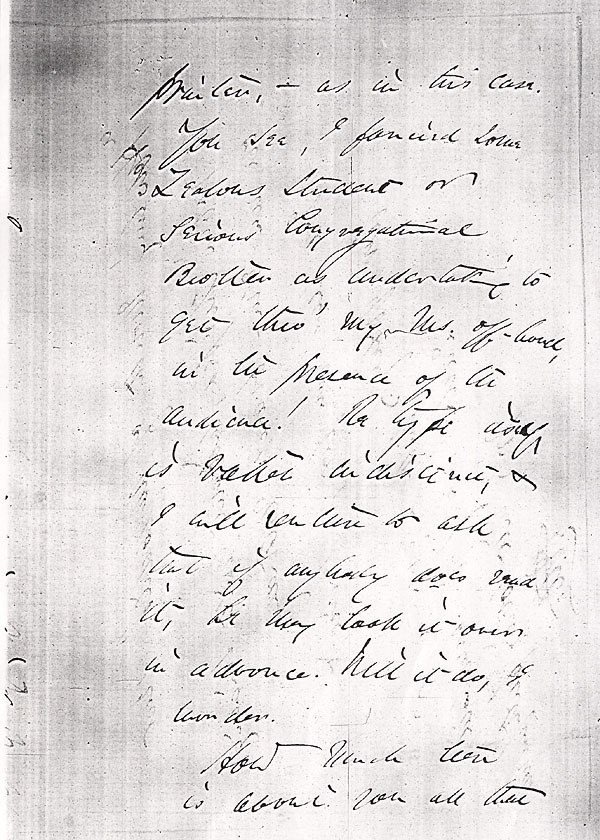 printer, — as in this case.
You see, I fancied some
zealous student or
serious Congregational
Brother as undertaking to
get thro' my Ms. off-hand,
in the presence of the
audience! The type itself
is rather indistinct, &
I will venture to ask
that if anybody does read
it, he may look it over
in advance. Will it do, I
wonder.
How much there
is about you all that